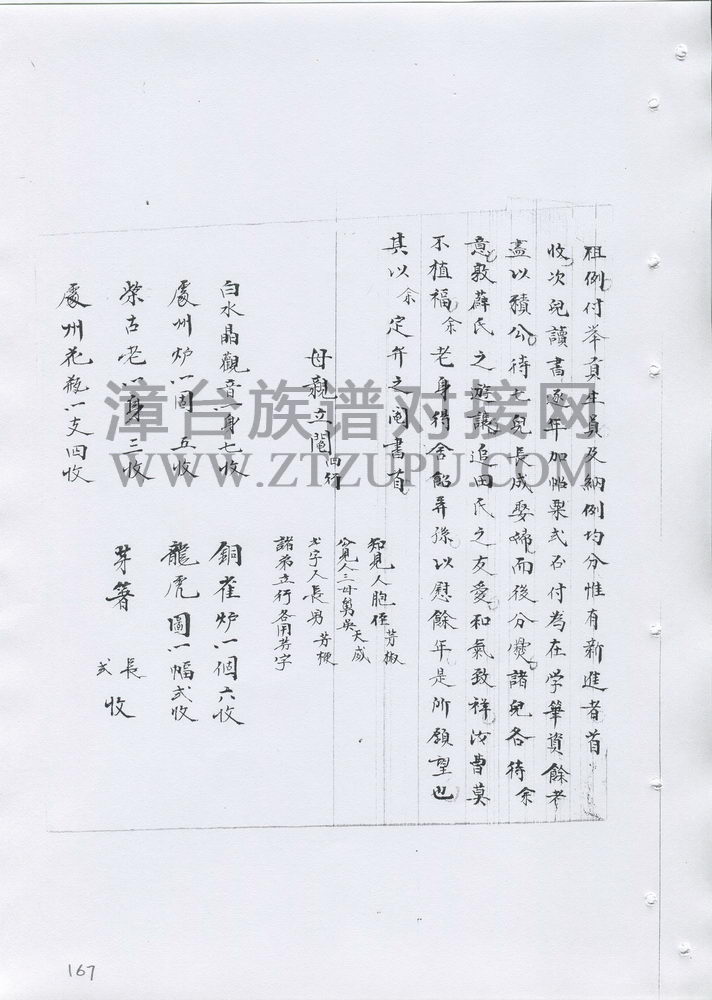 租例付举貢生員及納例均分惟有新進者首
收次兒讀書逐年加帖粟弍石付為在学筆資餘老
盡以積公待七兒長成娶婦而後分爨諸兒各待余
意敦薛氏之游讓追田氏之友愛和氣致祥汝曹莫
不植福余老身得含飴弄孫以慰餘年是所願望也
其以余定弁之阄書首
母親立阄
知見人胞侄芳椒
公見人三母舅吳天咸
代字人長男芳梗
諸弟立行各用芳字
白水晶觀音一身七收
銅雀炉一個六收
處州炉一個五收
龍虎圖一幅弍收
柴古老一身三收
芽箸長弍收
處州花瓶一支四收
漳台族谱对接网
WWW.ZTZUPU.COM
167